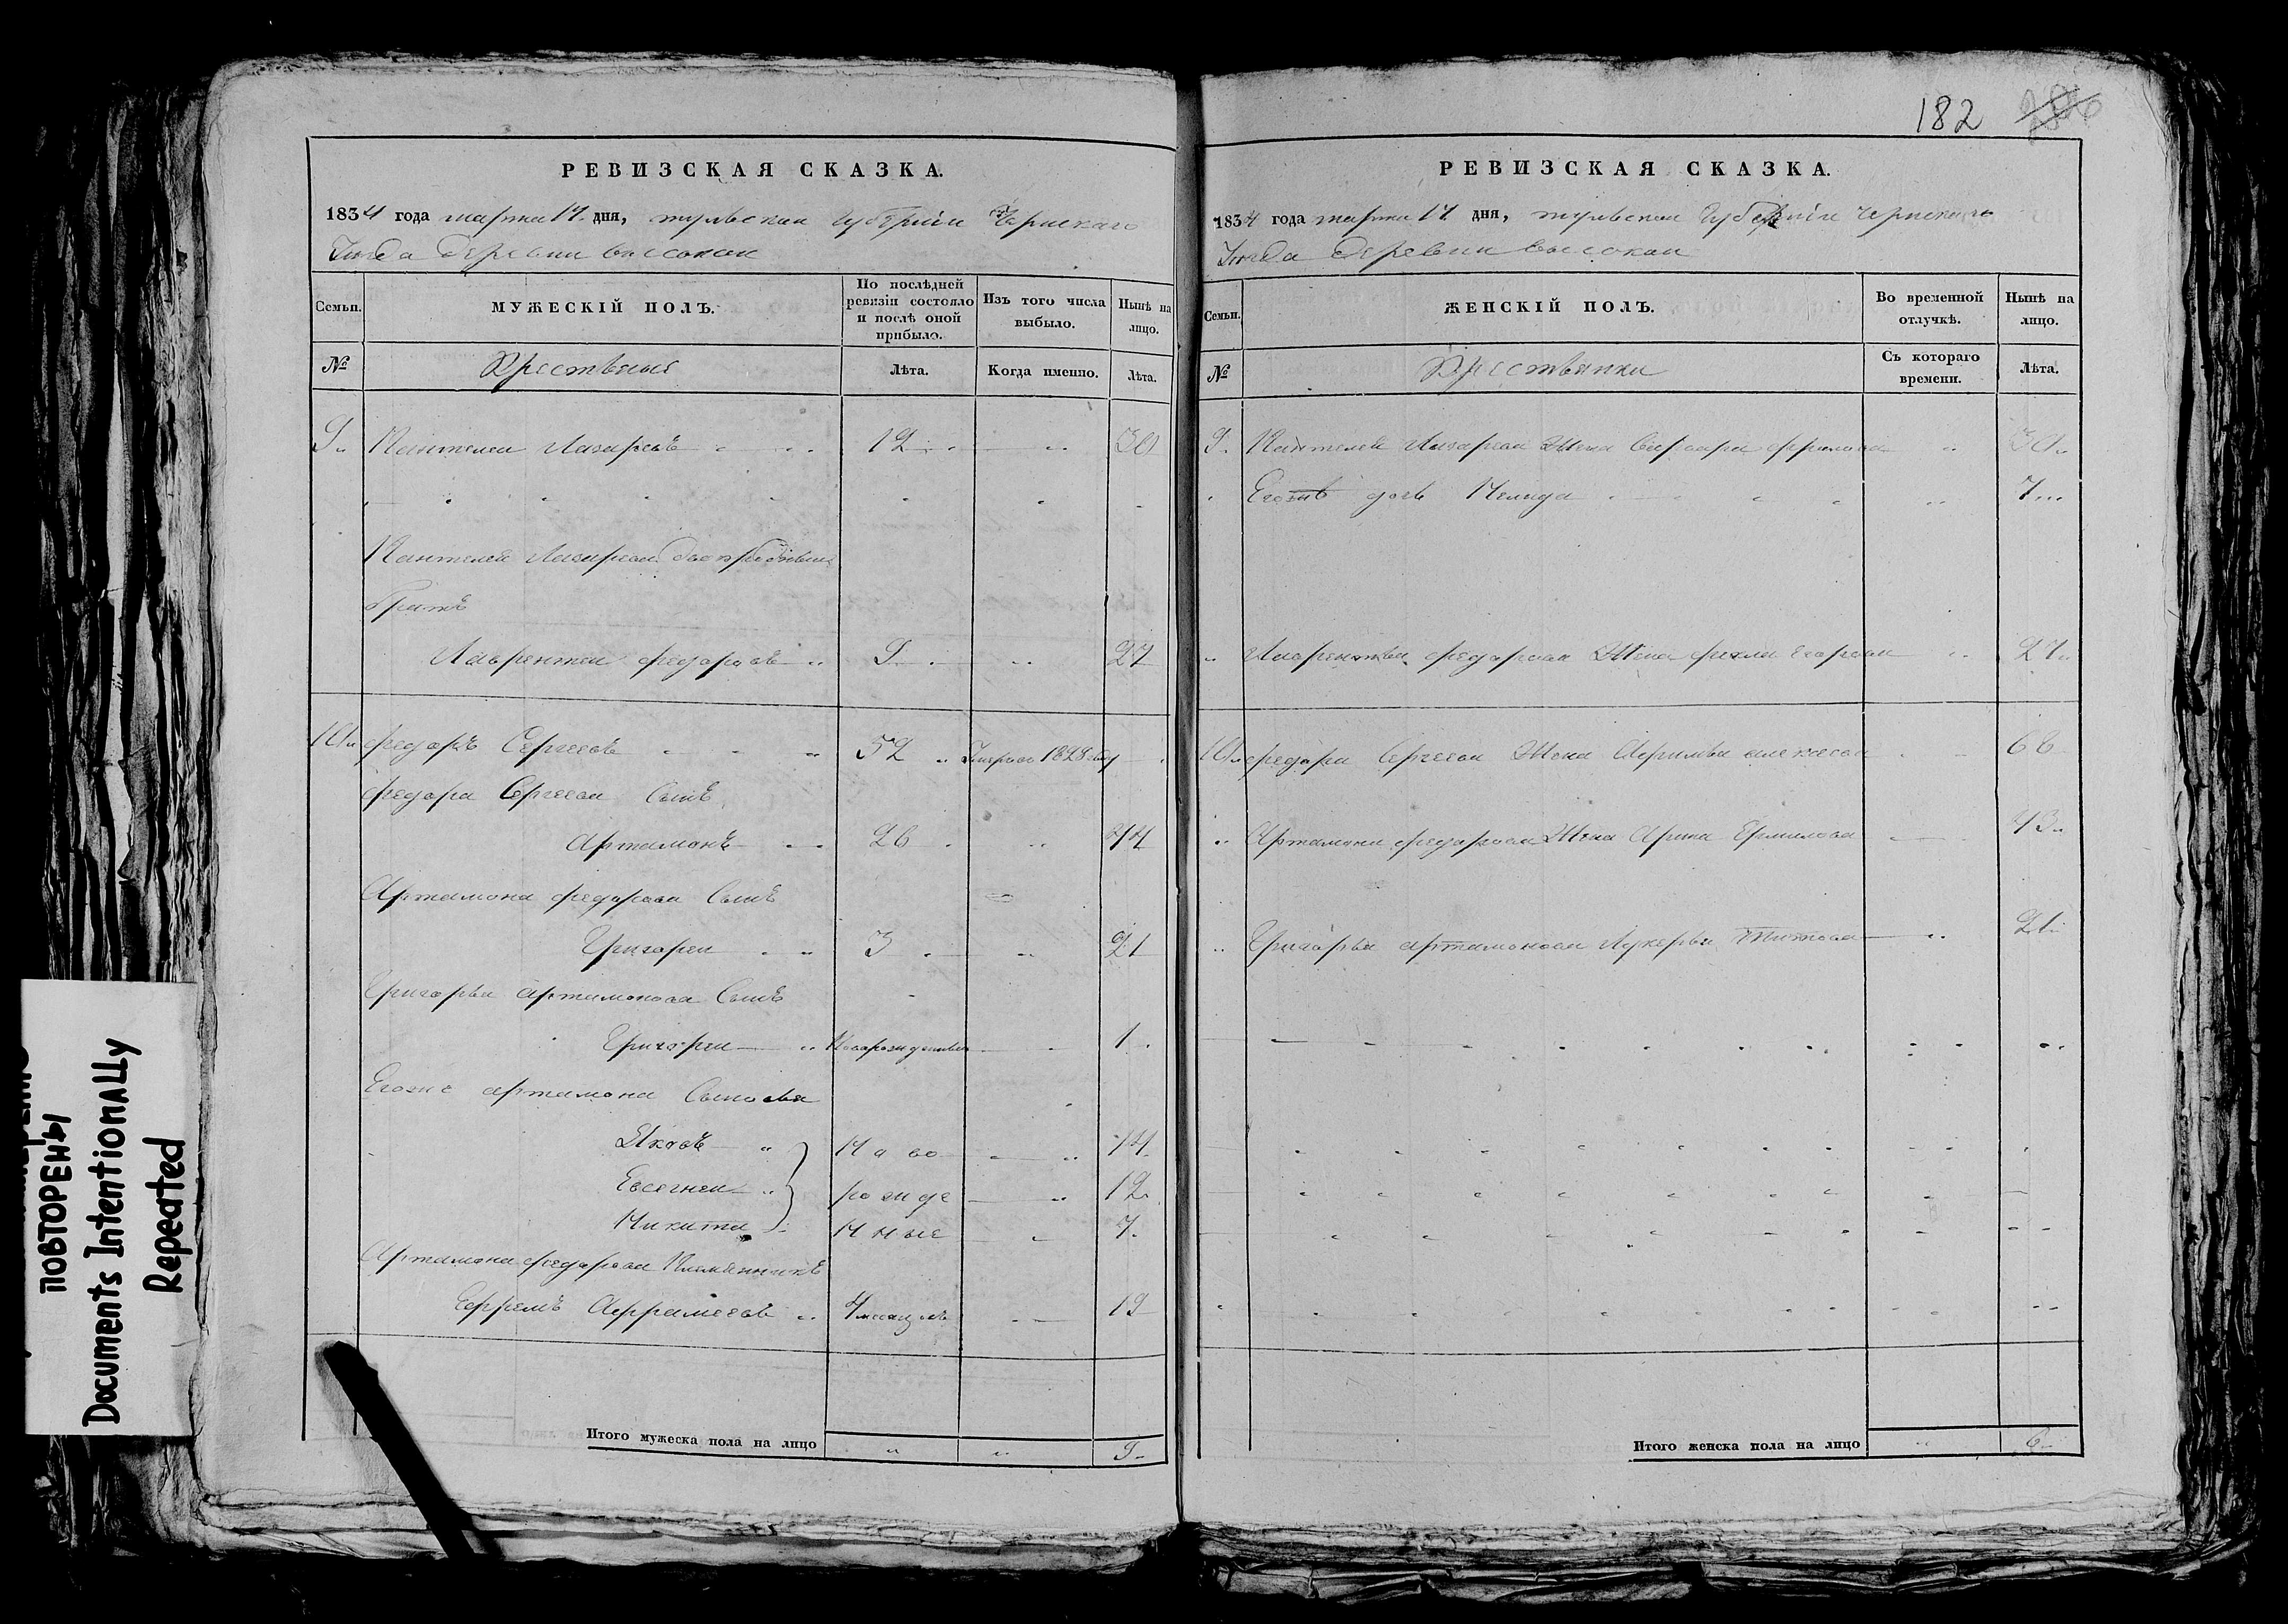 182
РЕВИЗСКАЯ СКАЗКА.
1834 года марта 17 дня, тульской губернiи Чернскаго
Уезда деревни высокой
Семьи.
МУЖЕСКІЙ ПОЛЪ.
По послѣдней ревизіи состояло и послѣ оной прибыло.
Изъ того числа выбыло.
Нынѣ на лицо.
№
Крестьяне
Лѣта.
Когда именно.
Лѣта.
9 Пантелеи Лазаревъ 12 30
Пантелея Лазарева двоюродный
братъ
Лаврентеи федаровъ 9 27
10 федаръ Сергеевъ 52 Умеръ въ 1828 году
федара Сергеева Сынъ
Артамонъ 26 44
Артамона федарова Сынъ
Григореи 3 21
Григорья артамонова Сынъ
Григореи новарожденный 1
Егоже артамона Сыновья
Яковъ Ново 14
Евсегнеи рожде 12
Никита нные 7
Артамона федарова Племянникъ
Ефремъ Афрамеевъ 4 месяцовъ 19
Итого мужеска пола на лицо 9
РЕВИЗСКАЯ СКАЗКА.
1834 года марта 17 дня, тульской Губернiи Чернскаго
Уезда деревни высокой
Семьи.
ЖЕНСКІЙ ПОЛЪ.
Во временной отлучкѣ.
Нынѣ на лицо.
№
Крестьянки
Съ котораго времени.
Лѣта.
9 Пантелея Лазарева Жена фралова 30
Егожъ дочь 7
Лаврентья федарова Жена фекла Егорова 27
10 федара Сергеева Жена алексева 66
Артамона федарова Жена Арина Ермилова 43
Григорья артамонова Лукерья Титова 21
Итого женска пола на лицо 6
ПОВТОРЕНЫ
Documents Intentionally
Repeated